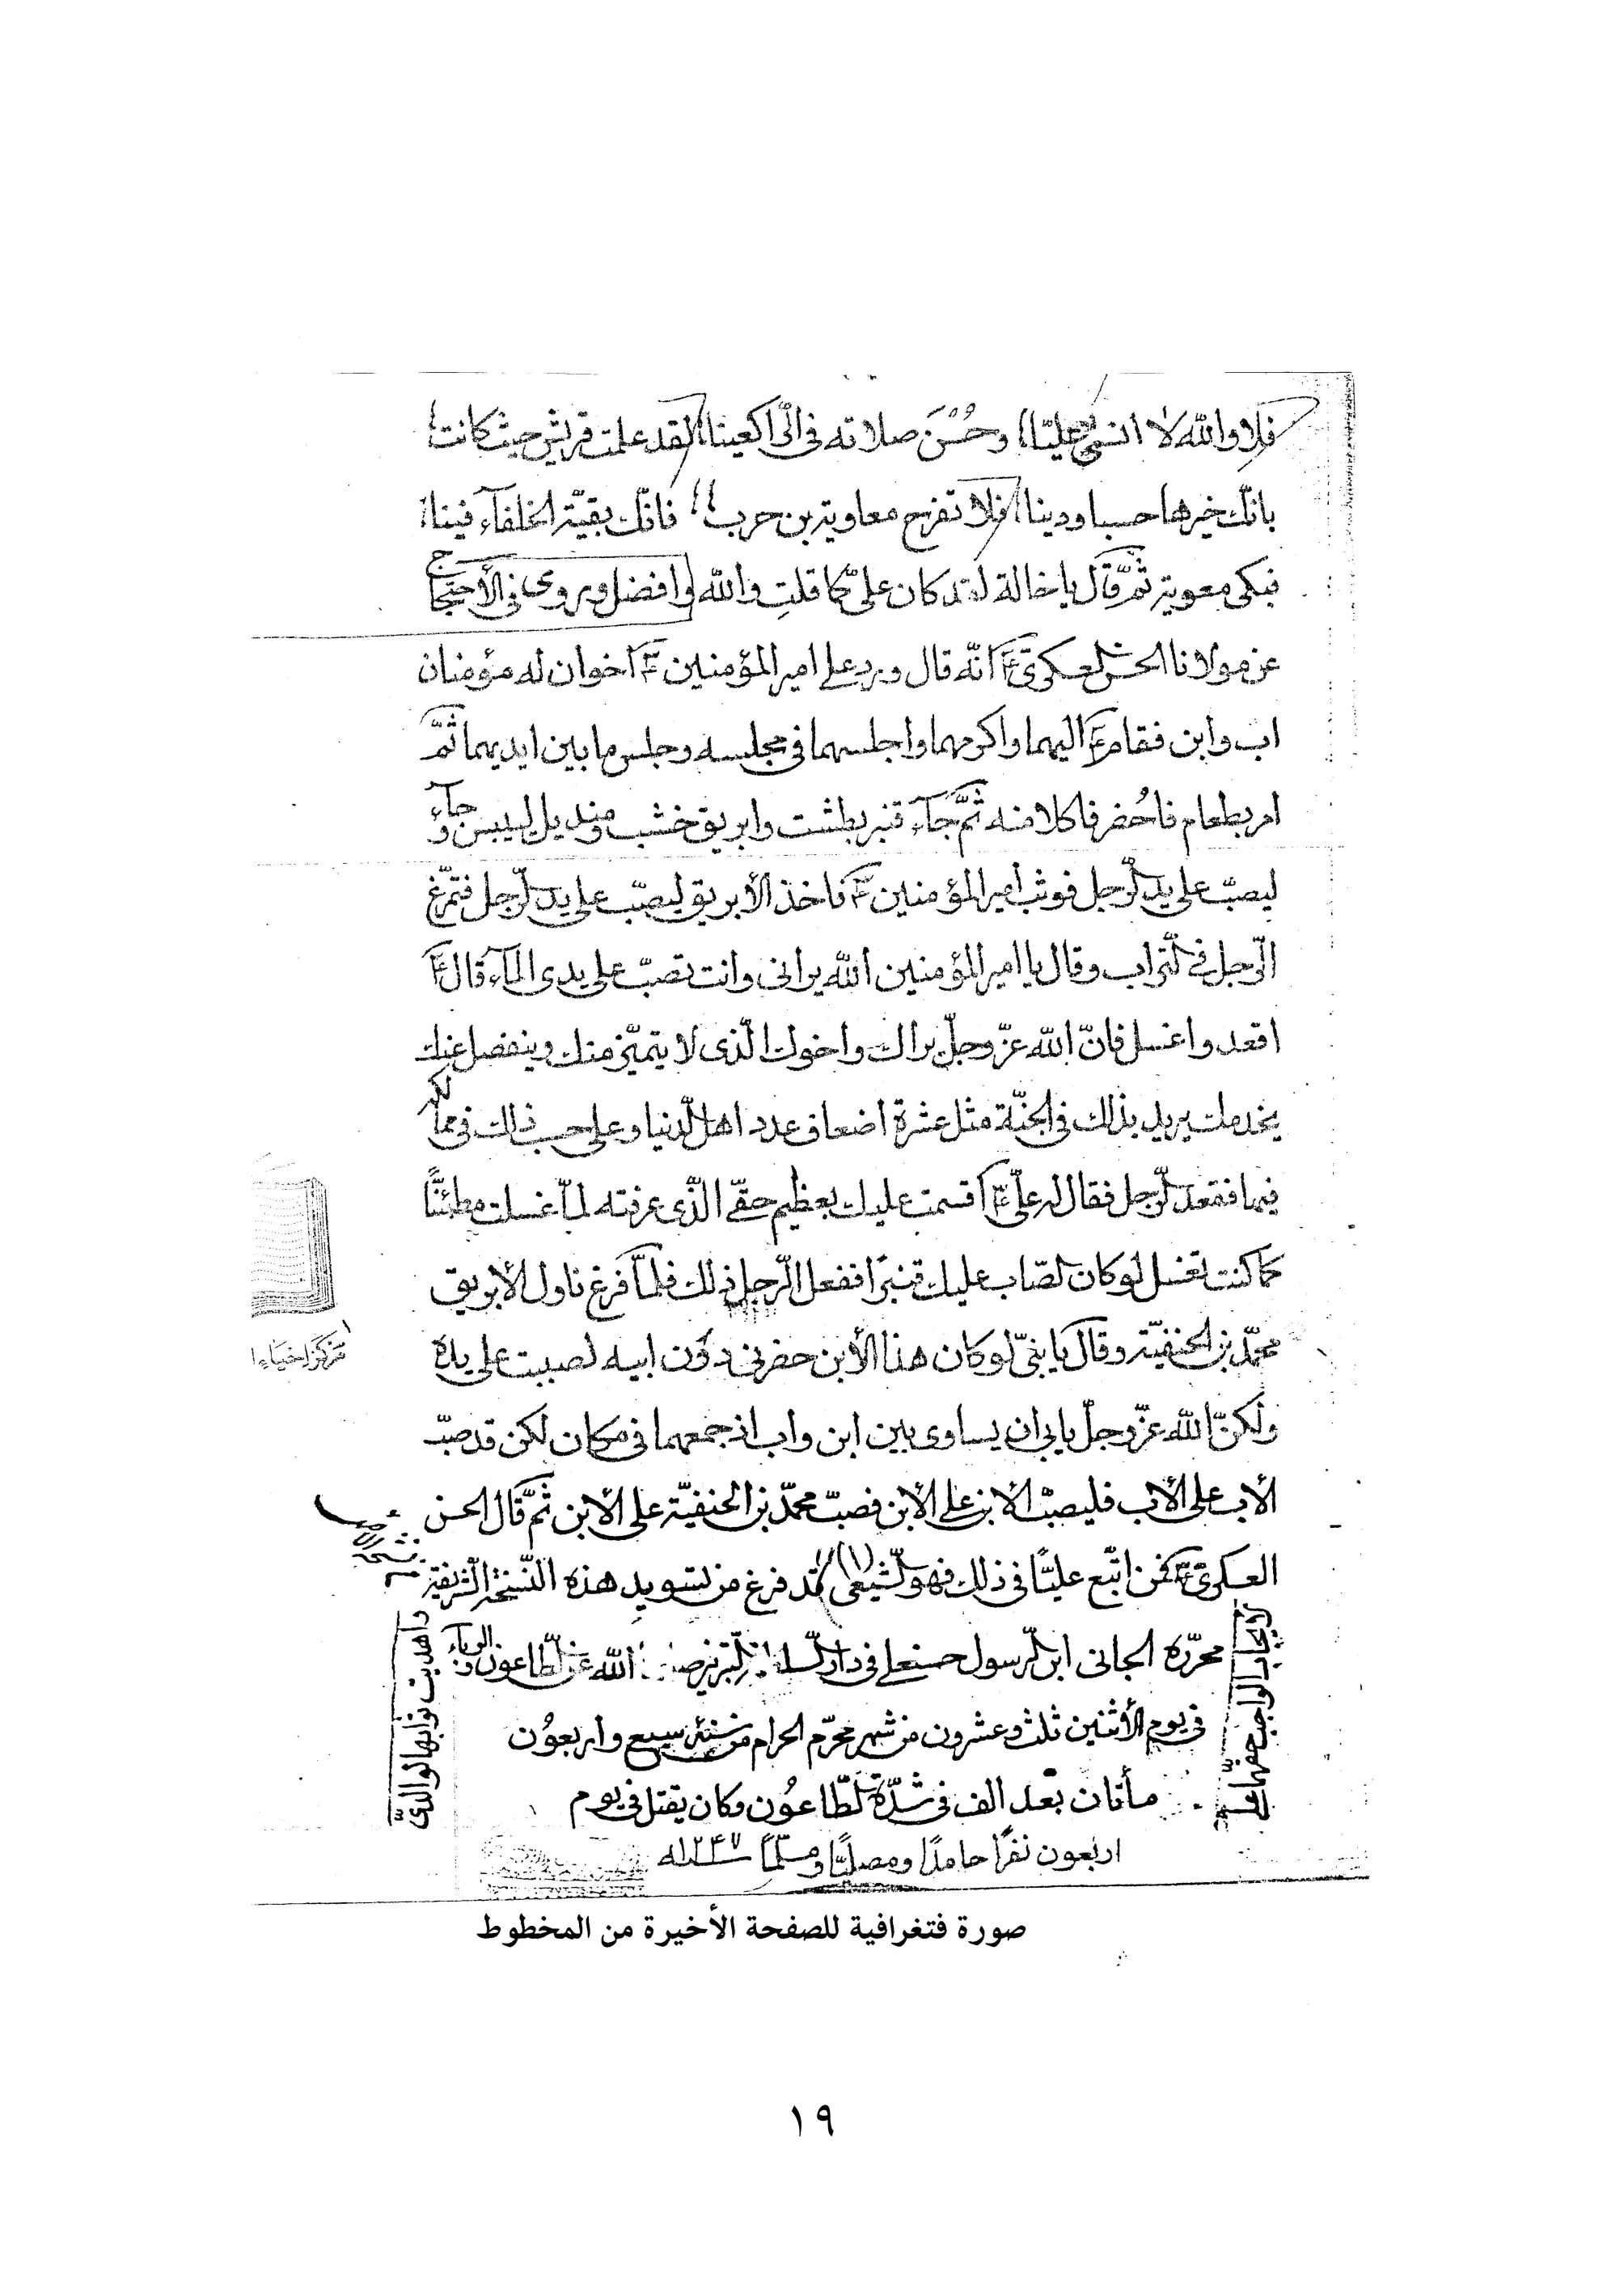 فلا والله لا انسى عليّا وحُسْنَ صلاته فى الرّاكعينا لقد علمت قريش حيث كانت
بانّك خيرها حسبا ودينا فلا تفرح معاوية بن حرب فانّك بقيّة الخلفآء فينا
فبكى معوية ثمّ قال يا خالة لقد كان علىّ كما قلتِ والله وافضل وروى فى الأحتجاج
عن مولانا الحسن العسكرىّ ع انّه قال ورد على امير المؤمنين ع اخوان له مؤمنان
اب وابن فقام ع اليهما واكرمهما واجلسهما فى مجلسه وجلس ما بين ايديهما ثمّ
امر بطعام فاُحضر فاكلا منه ثمّ جآء قنبر بطشت وابريق خشب ومنديل لييبس وجآء
ليصبّ على يد الرّجل فوثب امير المؤمنين ع فاخذ الأبريق ليصبّ على يد الرّجل فتمرّغ
الرّجل فى التّراب وقال يا امير المؤمنين الله يرانى وانت تصبّ على يدى المآء قال ع
اقعد واغسل فانّ الله عزّ وجلّ يراك واخوك الّذى لا يتميّز منك وينفصل عنك
يخدمك يريد بذلك فى الجنّة مثل عشرة اضعاف عدد اهل الدّنيا وعلى حسب ذلك فى ممالكه
فيها فقعد الرّجل فقال له علىّ ع اقسمت عليك بعظيم حقّى الّذى عرفته لمّا غسلت مطمئنّاً
كما كنت تغسل لو كان الصّاب عليك قنبرًا ففعل الرّجل ذلك فلمّا فرغ ناول الأبريق
محمّد بن الحنفيّة وقال يا بنىّ لو كان هذا الأبن حضرنى دون ابيه لصببت على يده
ولكنّ الله عزّ وجلّ يابى ان يساوى بين ابن واب اذ جمعهما فى مكان لكن قد صبّ
الأب على الأب فليصبّ الابن على الابن فصبّ محمّد بن الحنفيّة على الابن ثمّ قال الحسن
العسكرىّ ع فمن اتّبع عليّاً فى ذلك فهو الشّيعى (١) قد فرغ من تسويد هذه النّسخة الشّريفة
محرّره الجانى ابن الرّسول حسنعلى فى دار السلطنة التّبريز الله عن الطّاعون والوباء
فى يوم الأثنين ثلث وعشرون من شهر محرّم الحرام من سنة سبع واربعُون
مأتان بعد الف فى شدّة الطّاعُون وكان يقتل فى يوم
اربعون نفراً حامدًا ومصلّيًا ومسلّمًا سنه ١٢٤٧
واهديت ثوابها لوالدىّ
مركز احياء
صورة فتغرافية للصفحة الأخيرة من المخطوط
١٩